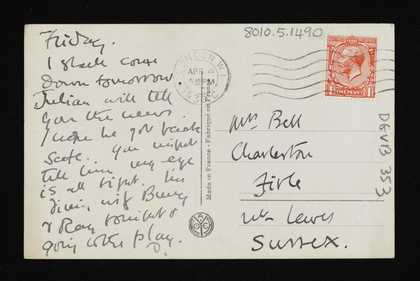 Friday.
I shall come
down tomorrow.
Julian will tell
you the news.
I hope he got back
safe. You might
tell him my eye
is all right. I'm
dining with Bunny
& Ray tonight &
going to the play.
D.
APR
Made in France - Fabriqué en France
8010.5.1490
Mrs Bell
Charleston
Firle
nr Lewes
Sussex.
DGVB 353